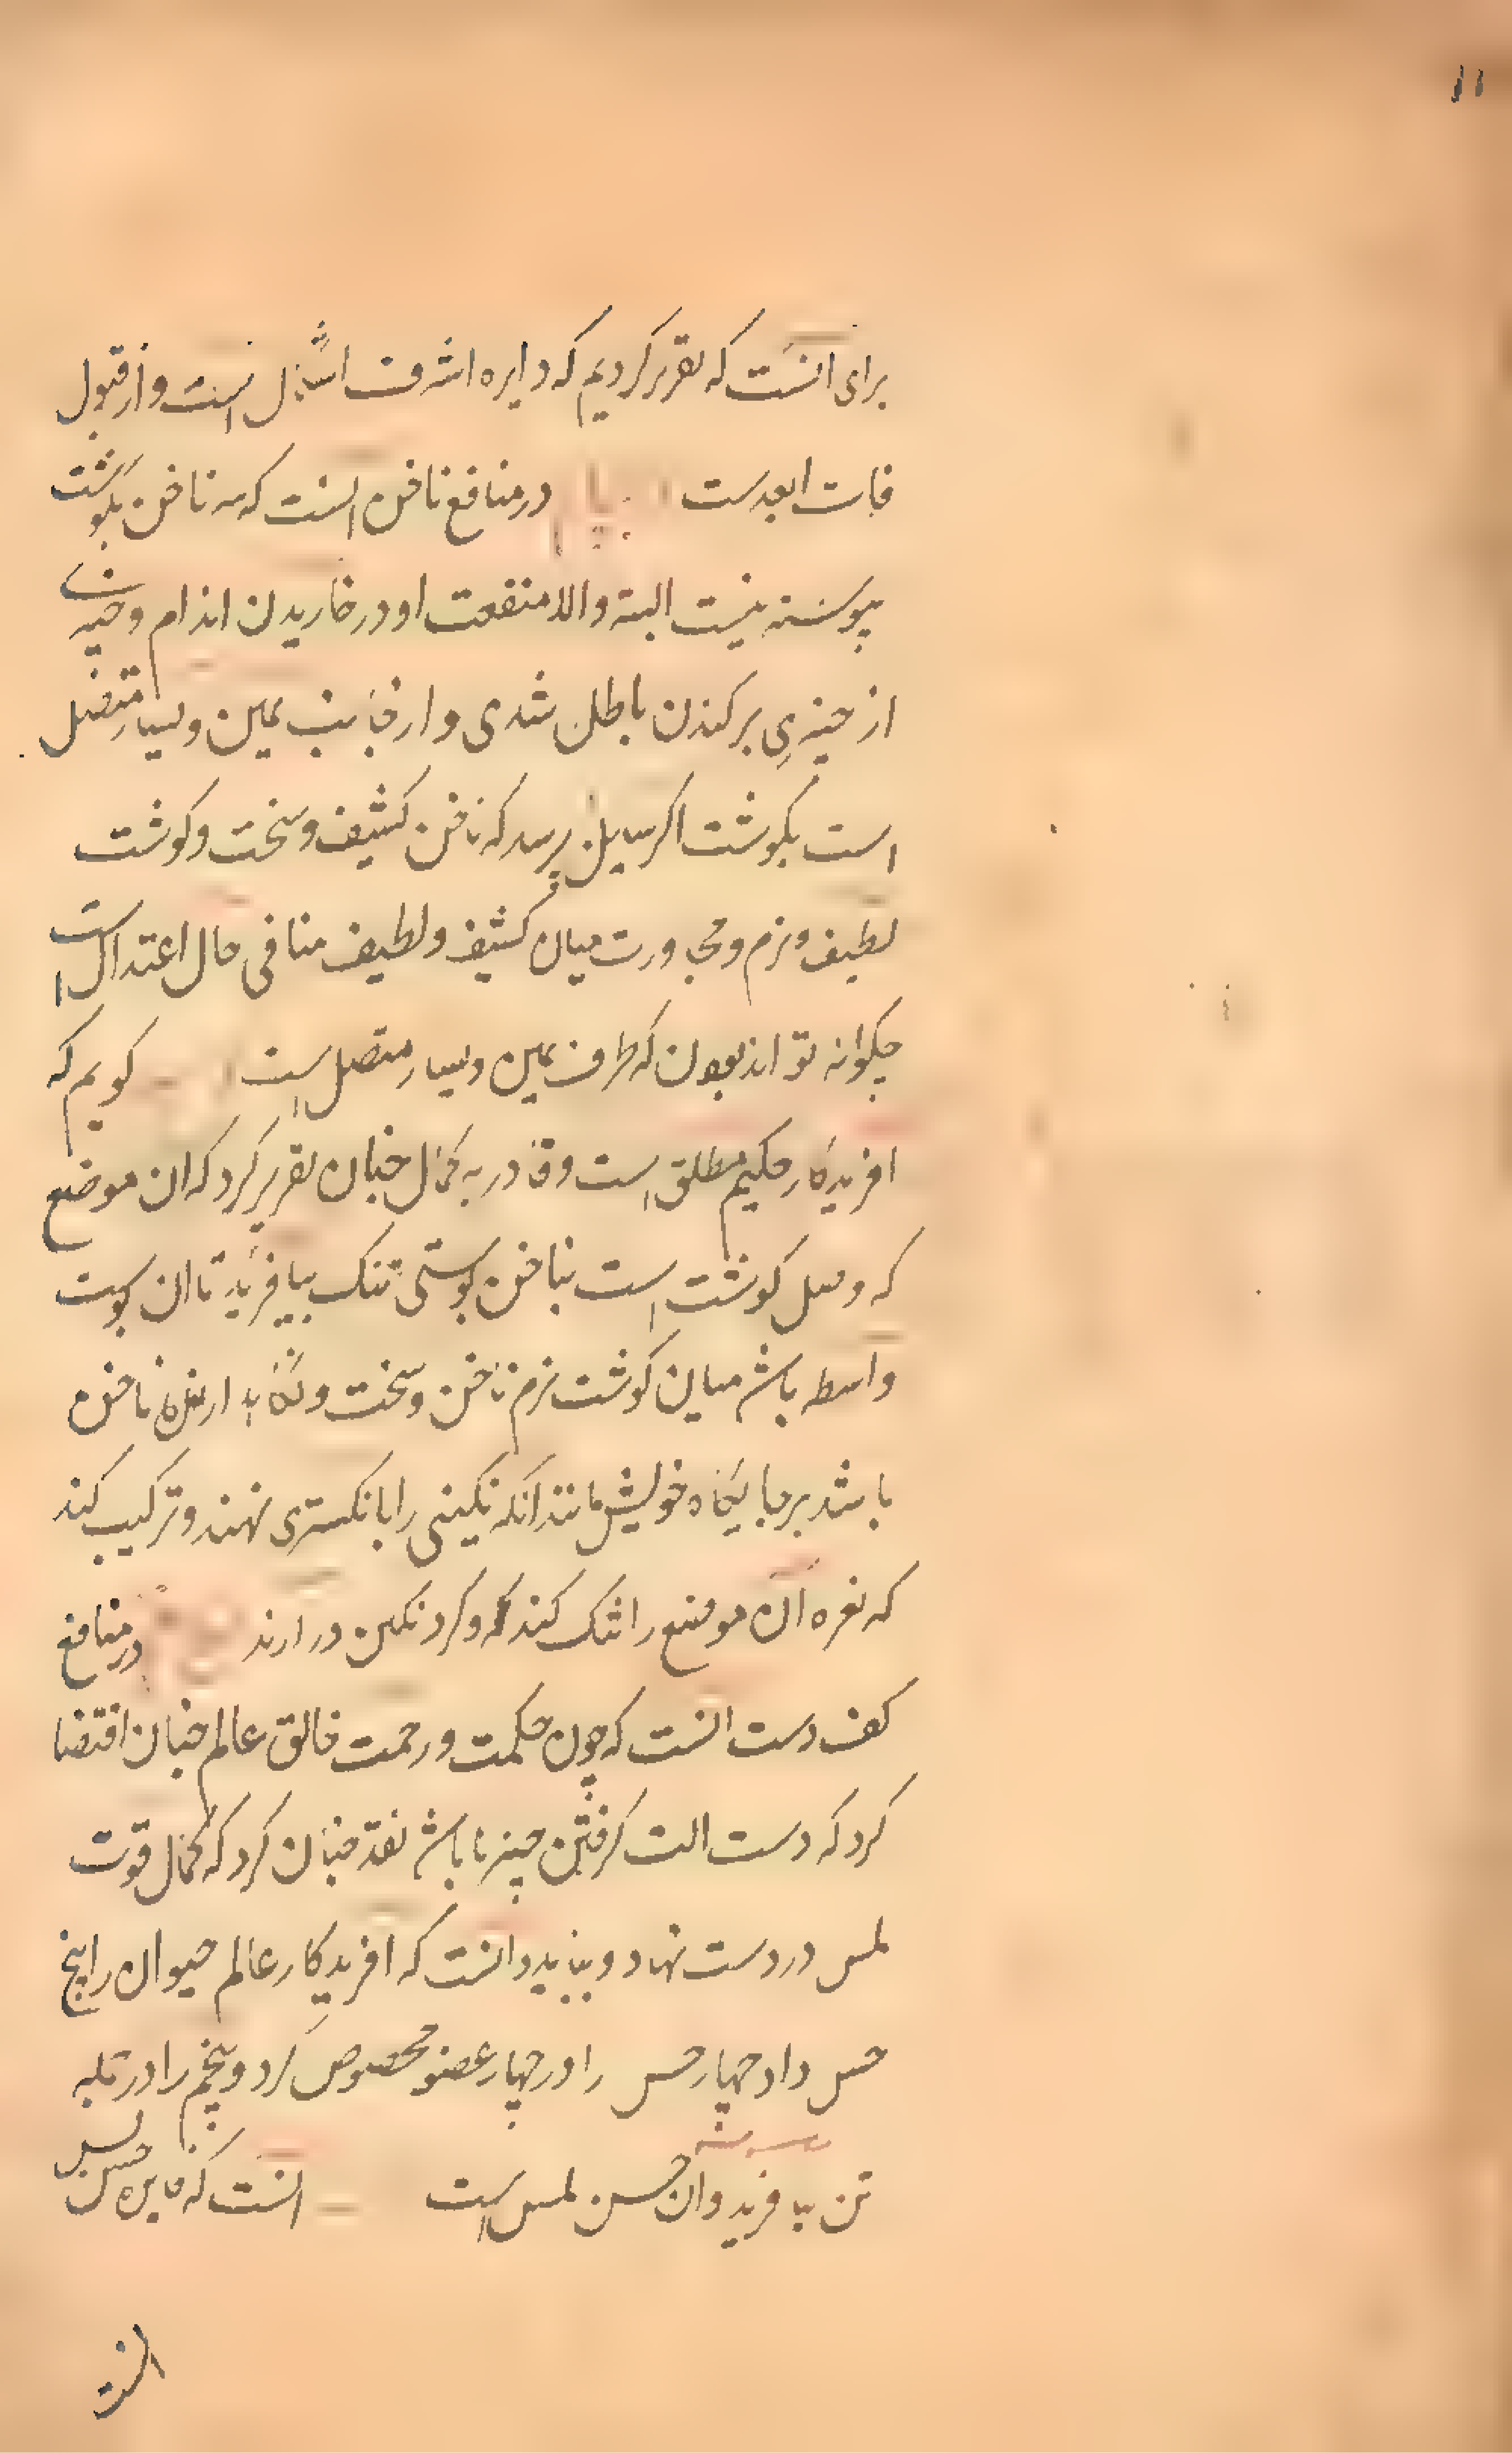 ۱۱
برای انست که تقریر کردیم که دایره اشرف اشکال است و از قبول
فات ابعدست در منافع ناخن انست که سر ناخن بکوشت
پیوسته نیست البته والا منفعت او در خاریدن اندام و چیزی
از چیزی برکندن باطل شدی و از جانب یمین و یسار متصل
است بکوشت اکر سایل پرسد که ناخن کثیف و سخت و کوشت
لطیف و نرم و مجاورت میان کثیف و لطیف منافی حال اعتدال است
چکوانه تواند بودن که طرف یمین و یسار متصل است کویم که
افریدکار حکیم مطلق است و قادر به کمال چنان تقریر کرد که ان موضع
که وصل کوشت است بناخن پوستی تنک بیافرید تا ان پوست
واسطه باشد میان کوشت نرم ناخن و سخت و نکاه دارنده ناخن
باشد بر جایکاه خویش مانند انکه نکینی را بانکستری نهند و ترکیب کند
که نقره آن موضع را تنک کند که و کرد نکین در ارند در منافع
کف دست انست که چون حکمت و رحمت خالق عالم چنان اقتضا
کرد که دست الت کرفتن چیزها باشد تقدیر چنان کرد که کمال قوت
لمس در دست نهاد و بباید دانست که افریدکار عالم حیوان را پنج
حس داد چهار حس را در چهار عضو مخصوص کرد و پنجم را در همه
تن بیافرید و ان حس لمس است انست که فایده حس لمس
انست